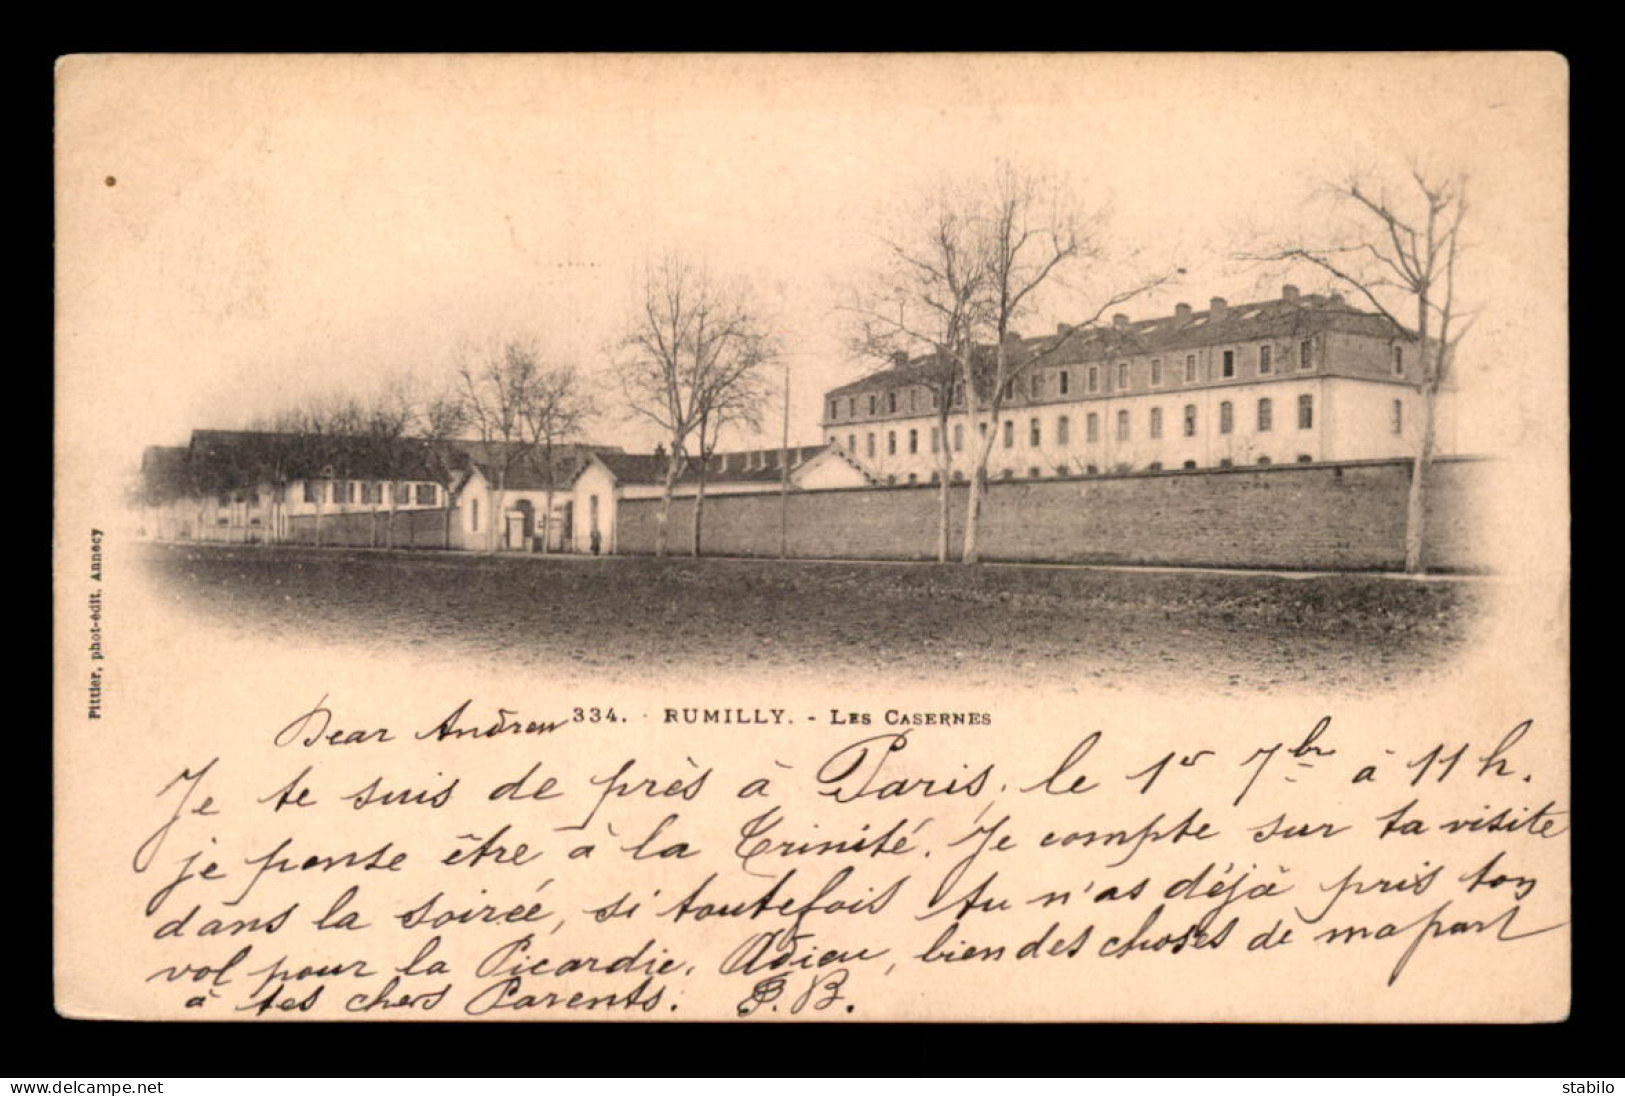 Pittier, phot-édit, Annecy
334. - RUMILLY. - LES CASERNES
Dear Andrew
Je te suis de près à Paris, le 1er 7bre à 11 h.
je pense être à la Trinité. Je compte sur ta visite
dans la soirée, si toutefois tu n'as déjà pris ton
vol pour la Picardie. Adieu, bien des choses de ma part
à tes chers Parents. P.B.
www.delcampe.net
stabilo